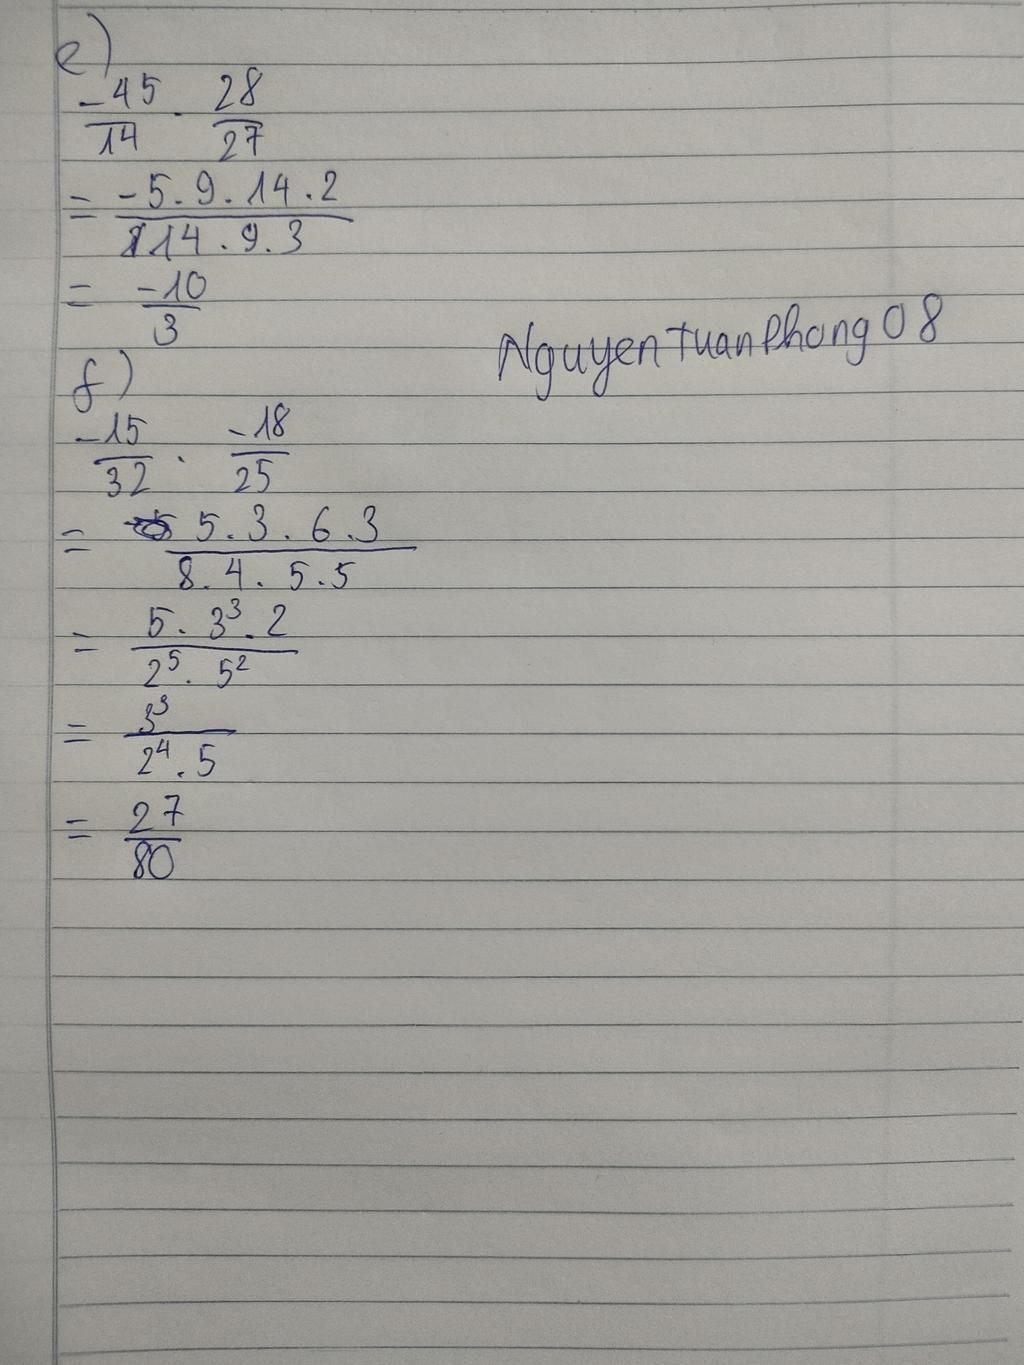 e)
-45/14 . 28/27
= -5.9.14.2/14.9.3
= -10/3
NguyentuanPhong08
f)
-15/32 . -18/25
= 5.3.6.3/8.4.5.5
= 5.3³.2/2⁵.5²
= 3³/2⁴.5
= 27/80